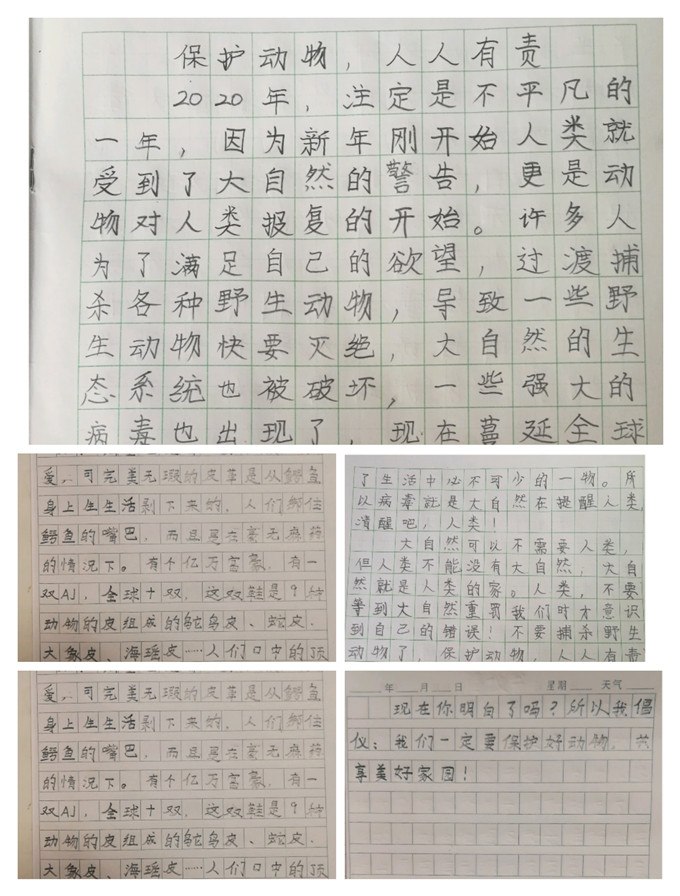 保护动物，人人有责
2020年，注定是不平凡的
一年，因为新年刚开始人类就
受到了大自然的警告，更是动
物对人类报复的开始。许多人
为了满足自己的欲望，过渡捕
杀各种野生动物，导致一些野
生动物快要灭绝，大自然的生
态系统也被破坏，一些强大的
病毒也出现了，现在蔓延全球
爱，可完美无瑕的皮革是从鳄鱼
身上生生活剥下来的，人们绑住
鳄鱼的嘴巴，而且是在毫无麻药
的情况下。有个亿万富豪，有一
双AJ，全球十双，这双鞋是9种
动物的皮组成的鸵鸟皮、蛇皮、
大象皮、海瑶皮……人们口中的顶
了生活中必不可少的一物。所
以病毒就是大自然在提醒人类，
清醒吧，人类！
大自然可以不需要人类，
但人类不能没有大自然，大自
然就是人类的家。人类，不要
等到大自然重罚我们时才意识
到自己的错误！不要捕杀野生
动物了，保护动物，人人有责
爱，可完美无瑕的皮革是从鳄鱼
身上生生活剥下来的，人们绑住
鳄鱼的嘴巴，而且是在毫无麻药
的情况下。有个亿万富豪，有一
双AJ，全球十双，这双鞋是9种
动物的皮组成的鸵鸟皮、蛇皮、
大象皮、海瑶皮……人们口中的顶
年 月 日 星期 天气
现在你明白了吗？所以我倡
议：我们一定要保护好动物，共
享美好家园！